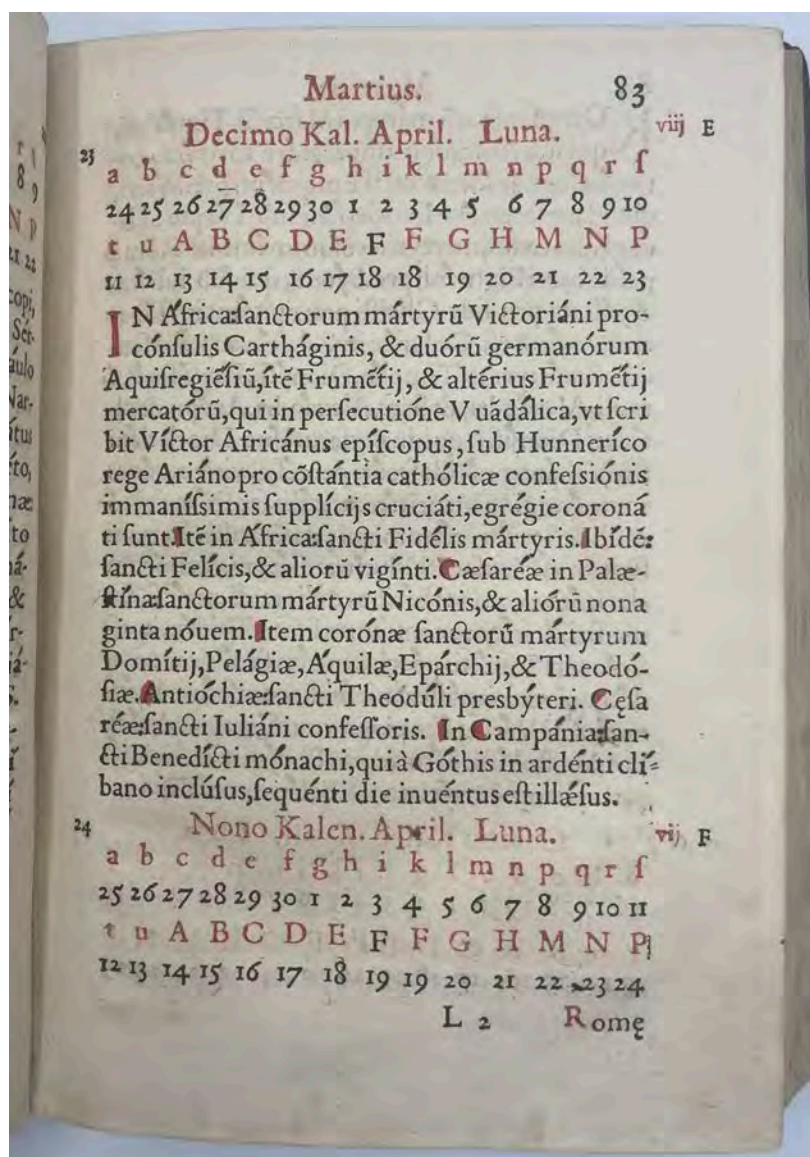 Martius. 83
Decimo Kal. April. Luna. viij E
23 a b c d e f g h i k l m n p q r ſ
24 25 26 27 28 29 30 1 2 3 4 5 6 7 8 9 10
t u A B C D E F F G H M N P
11 12 13 14 15 16 17 18 18 19 20 21 22 23
IN África:ſanctorum mártyrū Victoriáni pro-
cónſulis Cartháginis, & duórū germanórum
Aquiſregiēſiū,itē Frumētij, & altérius Frumētij
mercatórū,qui in perſecutióne Vuādálica,vt ſcri
bit Víctor Africánus epíſcopus, ſub Hunneríco
rege Ariáno pro cōſtántia cathólicæ confeſsiónis
immaníſsimis ſupplícijs cruciáti,egrégie coroná
ti ſunt.Itē in África:ſancti Fidélis mártyris.Ibídē:
ſancti Felícis,& aliorū vigínti.Cæſaréæ in Palæ-
ſtína:ſanctorum mártyrū Nicónis,& aliórū nona
ginta nóuem.Item corónæ ſanctorū mártyrum
Domítij,Pelágiæ,Áquilæ,Epárchij,& Theodó-
ſiæ.Antiochíæ:ſancti Theodúli presbýteri. Cęſa
réæ:ſancti Iuliáni confeſſoris. In Campánia:ſan-
cti Benedícti mónachi,qui à Góthis in ardénti clí-
bano inclúſus,ſequénti die inuéntus eſt illǽſus.
24 Nono Kalen. April. Luna. vij F
a b c d e f g h i k l m n p q r ſ
25 26 27 28 29 30 1 2 3 4 5 6 7 8 9 10 11
t u A B C D E F F G H M N P
12 13 14 15 16 17 18 19 19 20 21 22 23 24
L 2 Romę